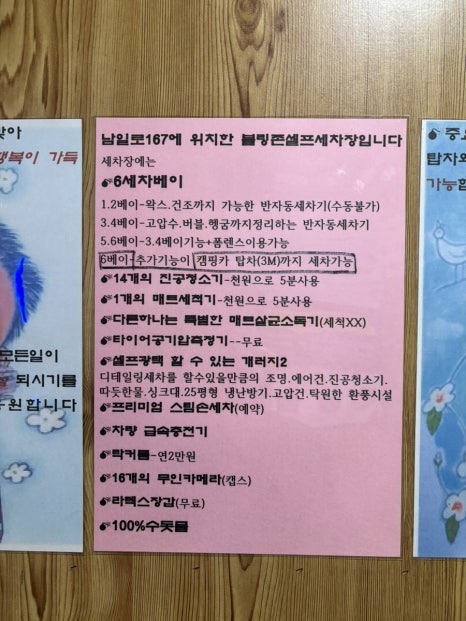 남일로167에 위치한 블링존셀프세차장입니다
세차장에는
6세차베이
1.2베이-왁스.건조까지 가능한 반자동세차기(수동불가)
3.4베이-고압수.버블.헹굼까지정리하는 반자동세차기
5.6베이-3.4베이기능+폼렌스이용가능
6베이-추가기능이 캠핑카 탑차(3M)까지 세차가능
14개의 진공청소기-천원으로 5분사용
1개의 매트세척기-천원으로 5분사용
다른하나는 특별한 매트살균소독기(세척XX)
타이어공기압측정기--무료
셀프광택 할 수 있는 개러지2
디테일링세차를 할수있을만큼의 조명.에어건.진공청소기.
따듯한물.싱크대.25평형 냉난방기.고압건.탁원한 환풍시설
프리미엄 스팀손세차(예약)
차량 급속충전기
락커룸-연2만원
16개의 무인카메라(캡스)
라텍스장갑(무료)
100%수돗물
맞아
행복이 가득
모든일이
되시기를
원합니다
중요
탑차와
가능합